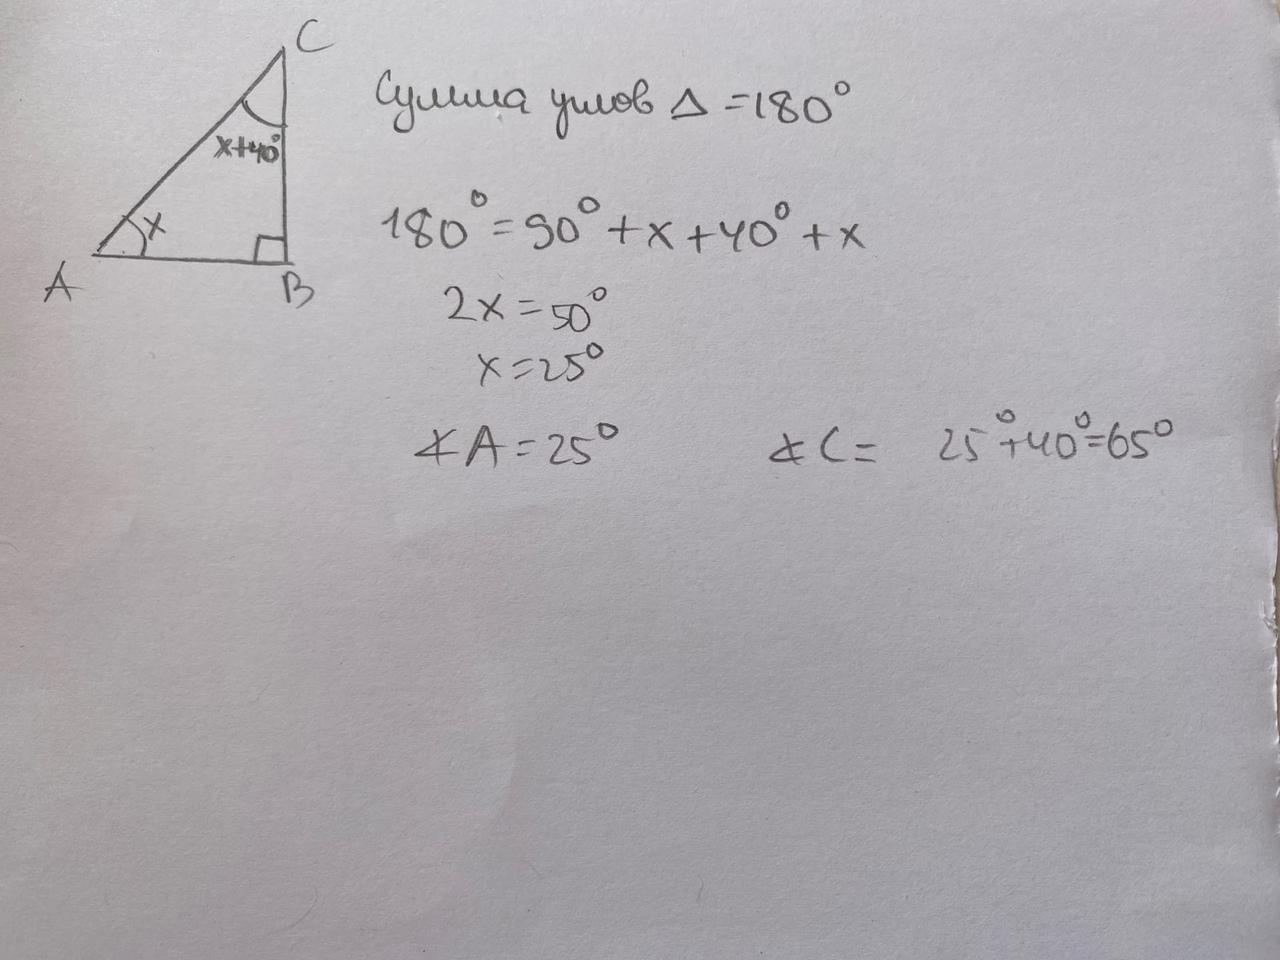 C
x+40°
x
A
B
Сумма углов Δ = 180°
180° = 90° + x + 40° + x
2x = 50°
x = 25°
∡A = 25°
∡C = 25° + 40° = 65°